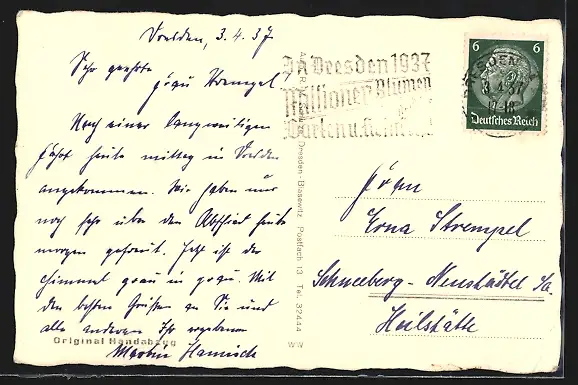 Dresden, 3.4.37
Sehr geehrte
Frau Strempel!
Nach einer langweiligen
Fahrt heute mittag in Dresden
angekommen. Wir haben uns
noch sehr über den Abschied heute
morgen gefreut. Jetzt ist der
Himmel grau in grau. Mit
den besten Grüßen an Sie und
alle anderen Ihr ergebener
Martin
Original Handabzug
Dresden-Blasewitz Postfach 13 Tel. 32444
WW
In Dresden 1937
Millionen Blumen
Garten u.
6 6
DRESDEN
3.4.37
17-18
Deutsches Reich
Erna Strempel
Schneeberg-Neustädtel Sa.
Heilstätte